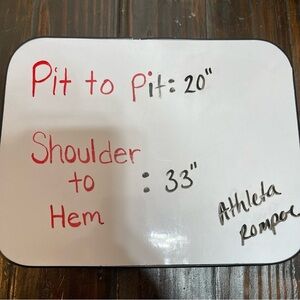 Pit to Pit: 20"
Shoulder
to : 33"
Hem
Athleta
Romper